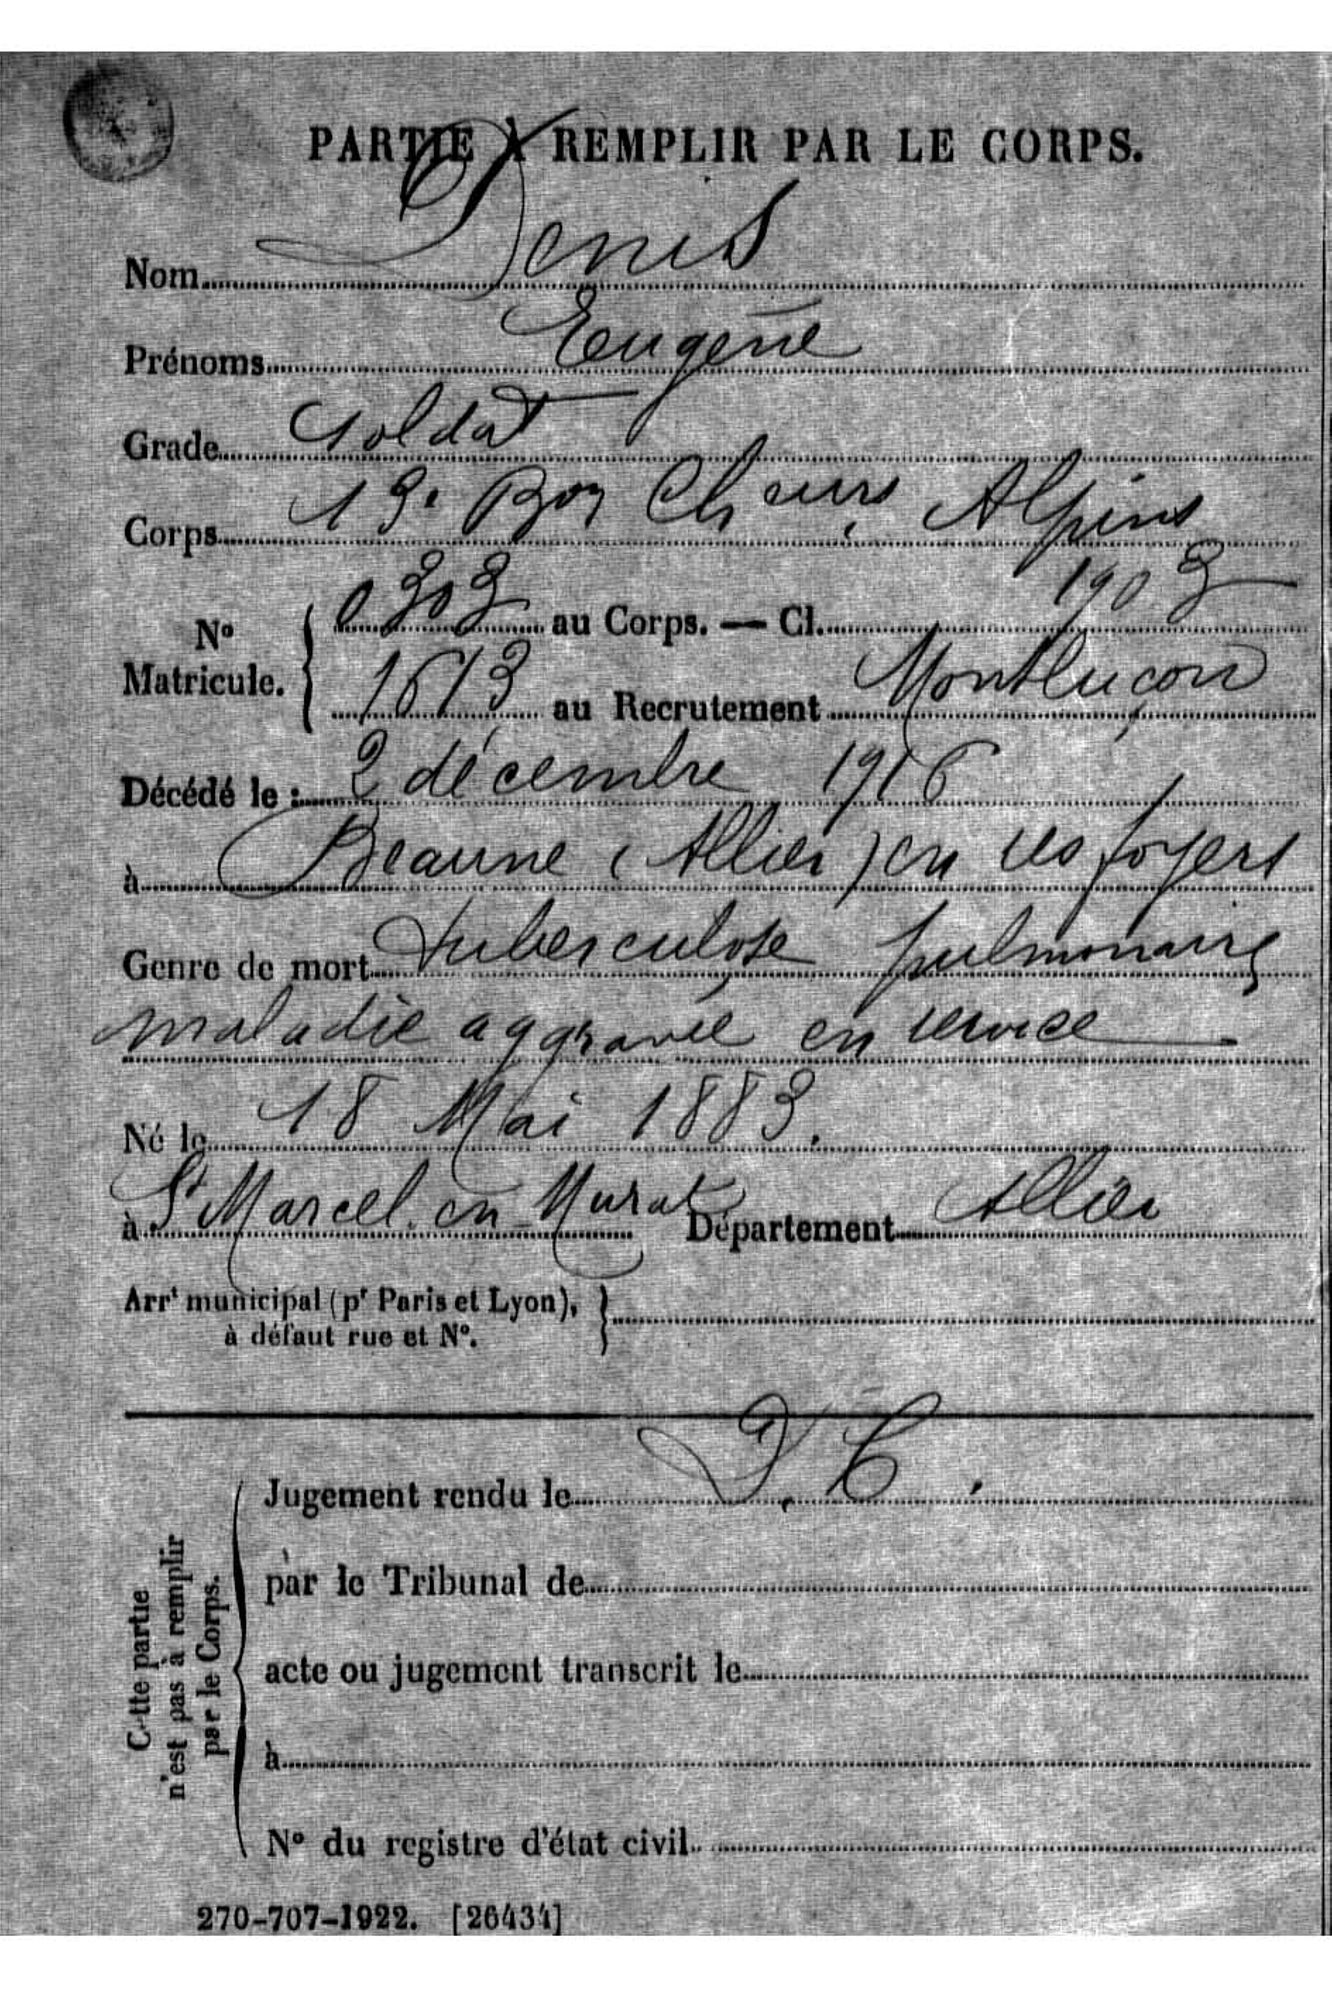 PARTIE À REMPLIR PAR LE CORPS.
Nom Denis
Prénoms Eugène
Grade Soldat
Corps 13e Bon Chaurs Alpins
No Matricule. 0303 au Corps. — Cl. 1903
1613 au Recrutement Montluçon
Décédé le : 2 décembre 1916
à Beaune (Allier) en ses foyers
Genre de mort tuberculose pulmonaire
maladie aggravée en service
Né le 18 Mai 1883.
à St Marcel en Murat Département Allier
Arrt municipal (pr Paris et Lyon),
à défaut rue et No.
D. C.
Jugement rendu le
par le Tribunal de
acte ou jugement transcrit le
à
No du registre d'état civil
Cette partie
n'est pas à remplir
par le Corps.
270-707-1922. [26434]